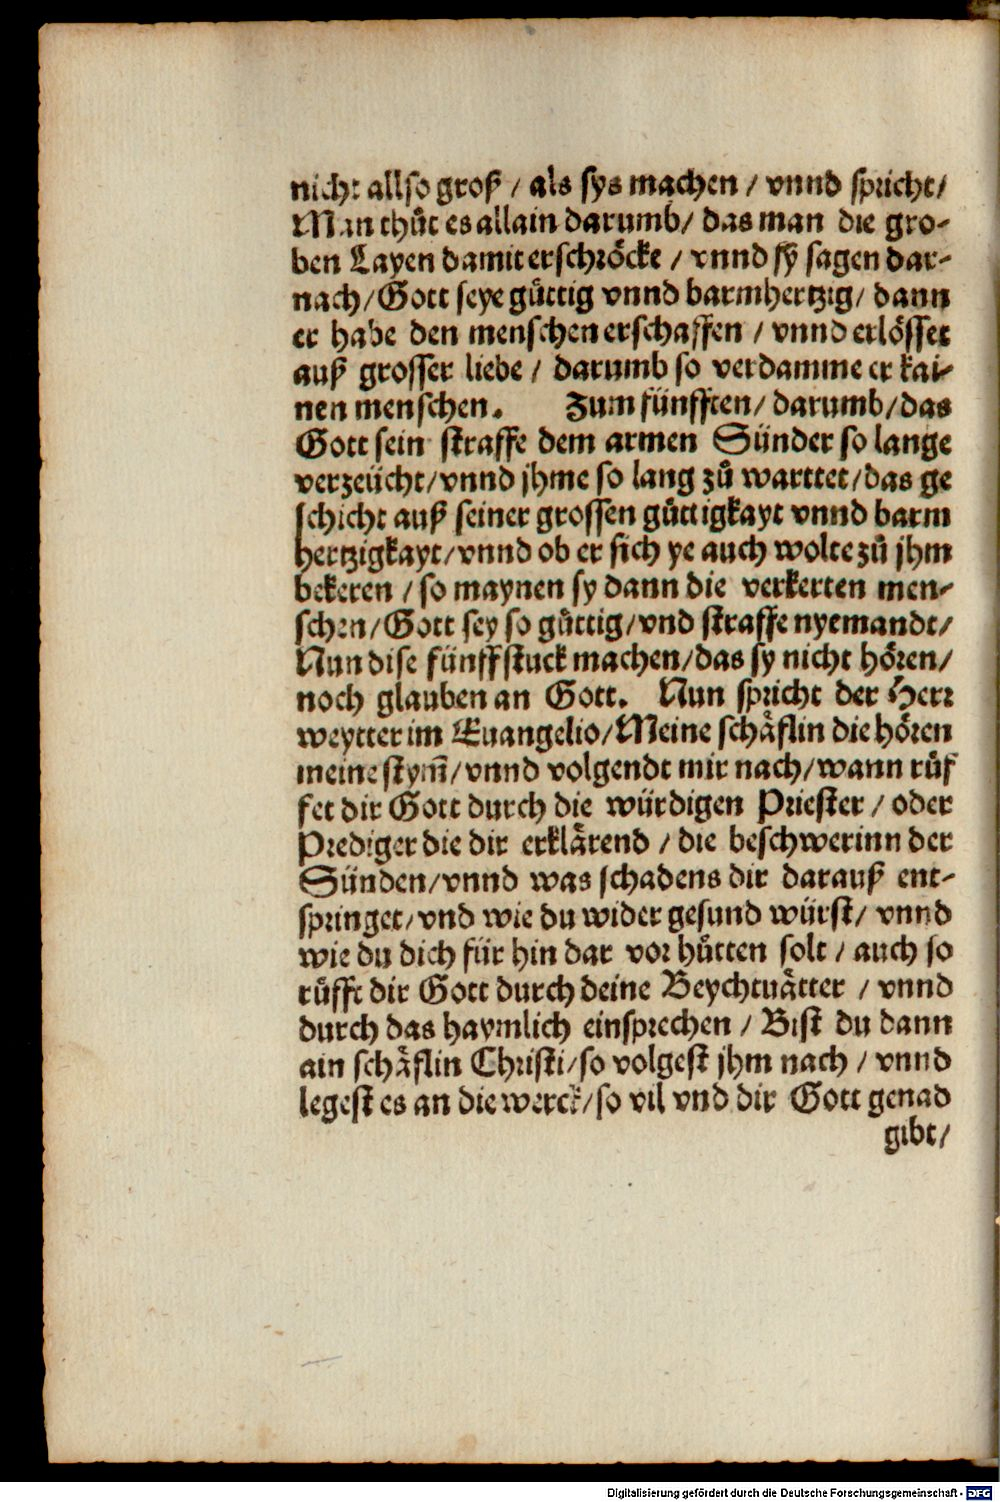 nicht allso groß / als sys machen / vnnd spricht /
Man thůt es allain darumb / das man die gro-
ben Layen damit erschröcke / vnnd sÿ sagen dar-
nach / Gott seye gůttig vnnd barmhertzig / dann
er habe den menschen erschaffen / vnnd erlösset
auß grosser liebe / darumb so verdamme er kai-
nen menschen. Zum fünfften / darumb / das
Gott sein straffe dem armen Sünder so lange
verzeücht / vnnd jhme so lang zů warttet / das ge
schicht auß seiner grossen gůttigkayt vnnd barm
hertzigkayt / vnnd ob er sich ye auch wolte zů jhm
bekeren / so maynen sy dann die verkerten men-
schen / Gott sey so gůttig / vnd straffe nyemandt /
Nun dise fünff stuck machen / das sy nicht hören /
noch glauben an Gott. Nun spricht der Herr
weytter im Euangelio / Meine schäflin die hören
meine stym̃ / vnnd volgendt mir nach / wann růf
fet dir Gott durch die würdigen Priester / oder
Prediger die dir erklärend / die beschwerinn der
Sünden / vnnd was schadens dir darauß ent-
springet / vnd wie du wider gesund würst / vnnd
wie du dich für hin dar vor hůtten solt / auch so
růfft dir Gott durch deine Beychtuätter / vnnd
durch das haymlich einsprechen / Bist du dann
ain schäflin Christi / so volgest jhm nach / vnnd
legest es an die werck / so vil vnd dir Gott genad
gibt /
Digitalisierung gefördert durch die Deutsche Forschungsgemeinschaft - DFG